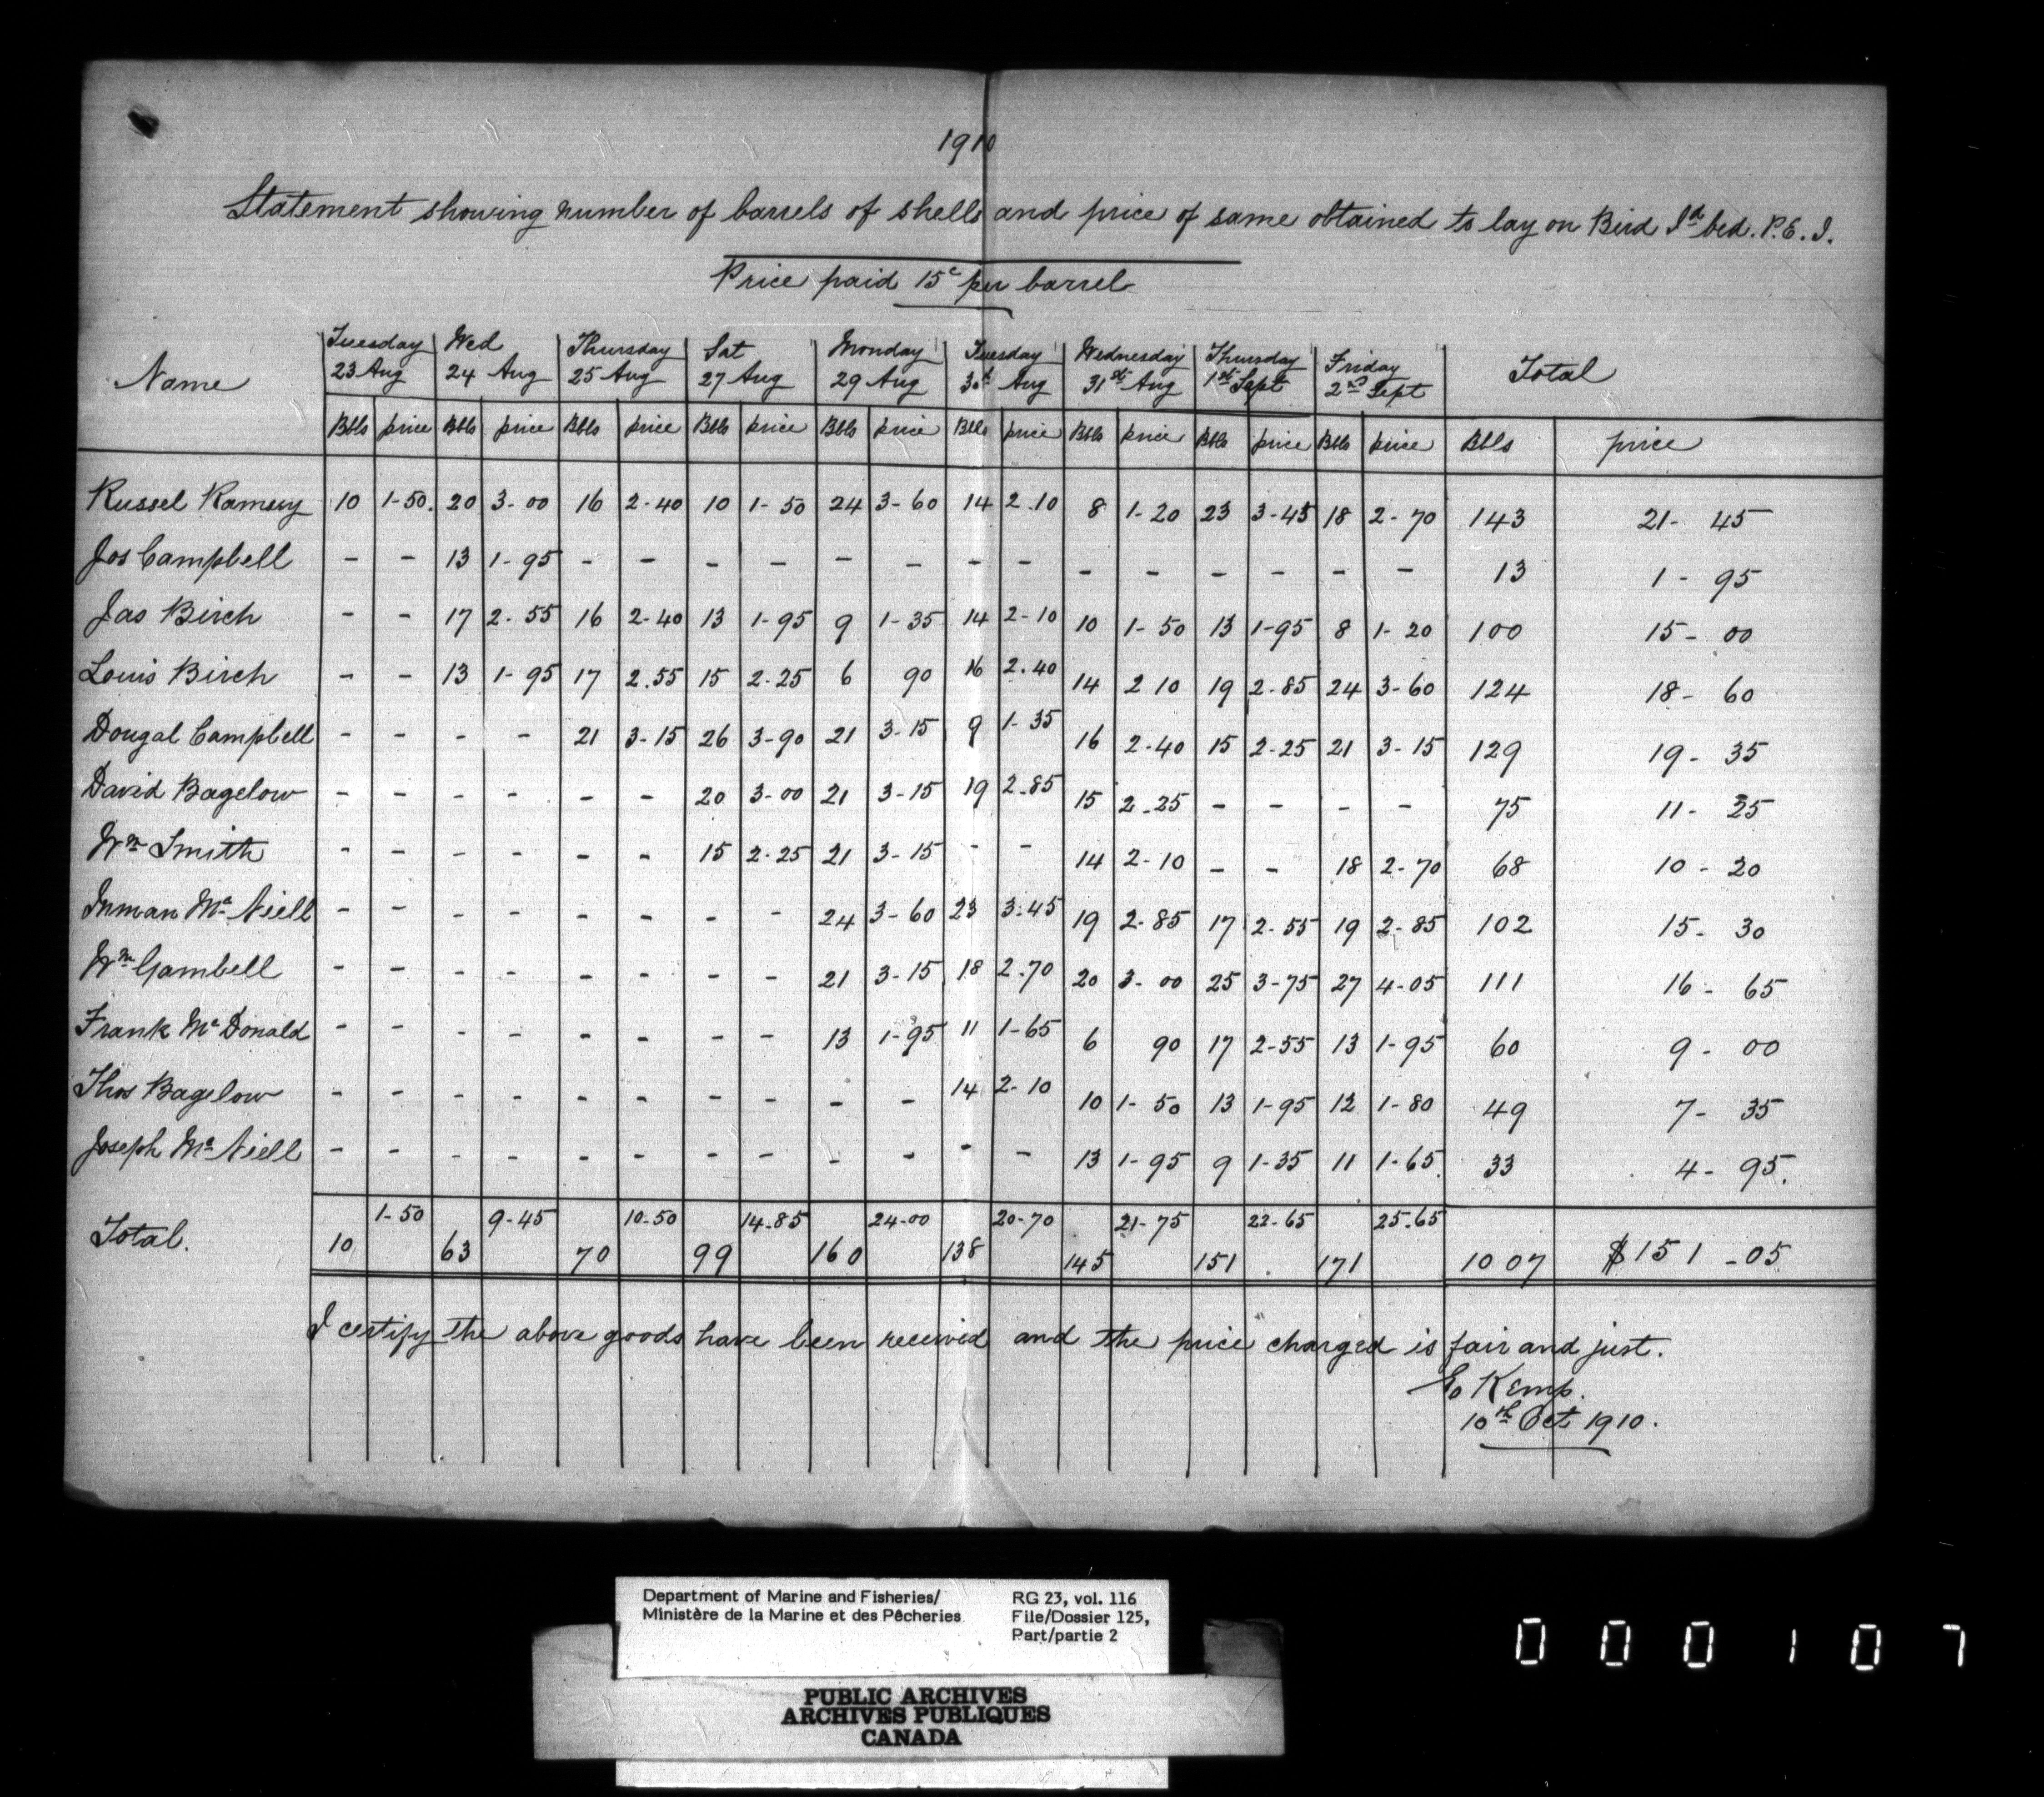 1910
Statement showing number of barrels of shells and price of same obtained to lay on Bird Id bed. P.E.I.
Price paid 15c per barrel
Name | Tuesday 23 Aug | Wed 24 Aug | Thursday 25 Aug | Sat 27 Aug | Monday 29 Aug | Tuesday 30th Aug | Wednesday 31st Aug | Thursday 1st Sept | Friday 2nd Sept | Total
Bbls price Bbls price Bbls price Bbls price Bbls price Bbls price Bbls price Bbls price Bbls price Bbls price
Russel Ramsey 10 1-50. 20 3-00 16 2-40 10 1-50 24 3-60 14 2.10 8 1-20 23 3-45 18 2-70 143 21-45
Jos Campbell - - 13 1-95 - - - - - - - - - - - - - - 13 1-95
Jas Birch - - 17 2-55 16 2-40 13 1-95 9 1-35 14 2-10 10 1-50 13 1-95 8 1-20 100 15-00
Louis Birch - - 13 1-95 17 2.55 15 2-25 6 90 16 2.40 14 2 10 19 2-85 24 3-60 124 18-60
Dougal Campbell - - - - 21 3-15 26 3-90 21 3-15 9 1-35 16 2-40 15 2-25 21 3-15 129 19-35
David Bagelow - - - - - - 20 3-00 21 3-15 19 2.85 15 2-25 - - - - 75 11-25
Wm Smith - - - - - - 15 2-25 21 3-15 - - 14 2-10 - - 18 2-70 68 10-20
Inman Mc Niell - - - - - - - - 24 3-60 23 3-45 19 2-85 17 2-55 19 2-85 102 15-30
Wm Gambell - - - - - - - - 21 3-15 18 2.70 20 3-00 25 3-75 27 4-05 111 16-65
Frank Mc Donald - - - - - - - - 13 1-95 11 1-65 6 90 17 2-55 13 1-95 60 9-00
Thos Bagelow - - - - - - - - - - 14 2-10 10 1-50 13 1-95 12 1-80 49 7-35
Joseph Mc Niell - - - - - - - - - - - - 13 1-95 9 1-35 11 1-65 33 4-95.
Total. 10 1-50 63 9-45 70 10-50 99 14-85 160 24-00 138 20-70 145 21-75 151 22-65 171 25.65 1007 $151-05
I certify the above goods have been received and the price charged is fair and just.
E Kemp.
10th Oct 1910.
Department of Marine and Fisheries/
Ministère de la Marine et des Pêcheries
RG 23, vol. 116
File/Dossier 125,
Part/partie 2
PUBLIC ARCHIVES
ARCHIVES PUBLIQUES
CANADA
000107